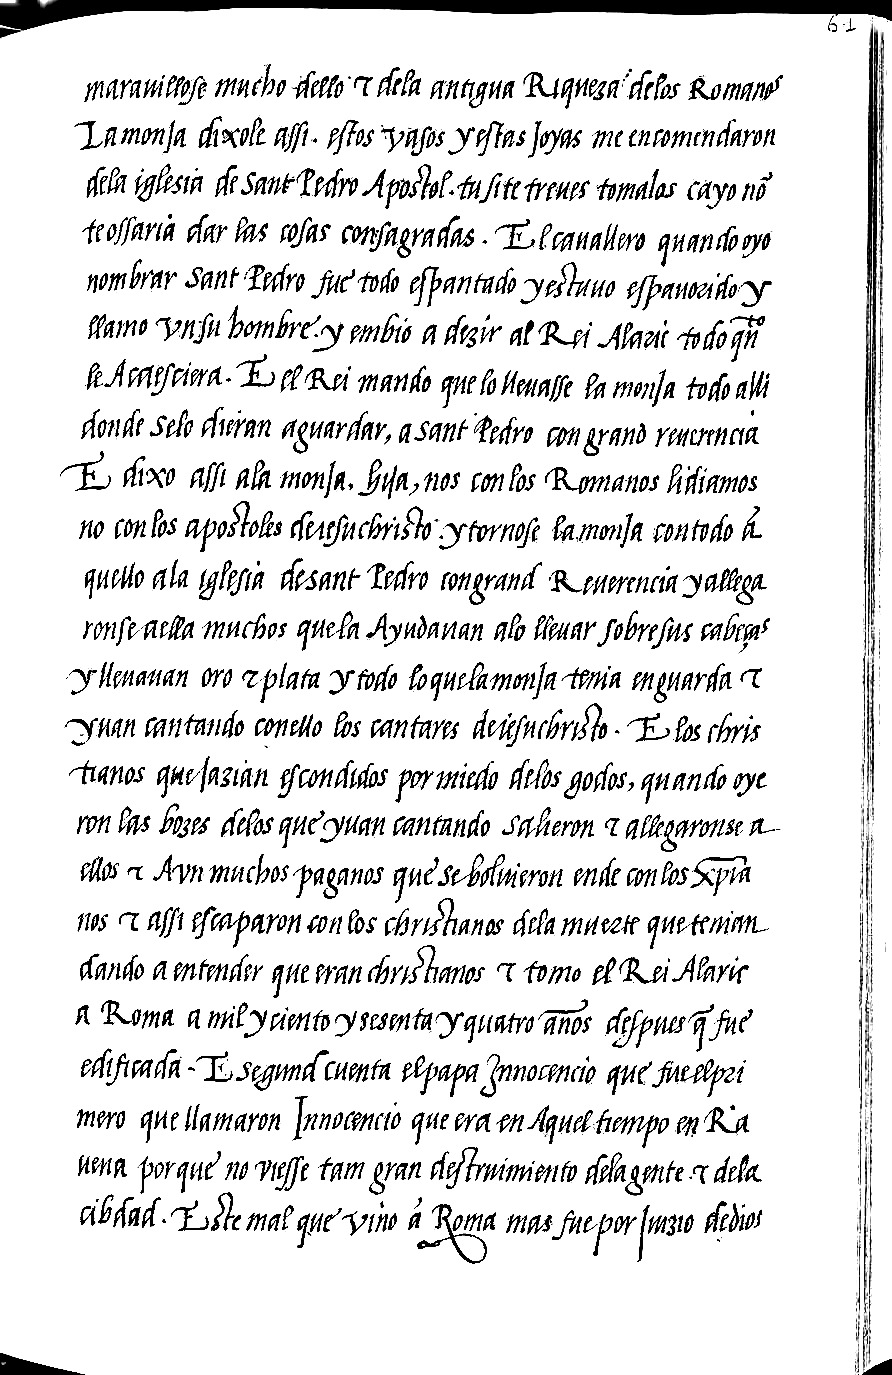 61
marauillose mucho dello τ dela antigua Riqueza delos Romanos
La monJa dixole assi. estos vasos y estas Joyas me encomendaron
dela iglesia de Sant Pedro Apostol. tu si te treues tomalas ca yo nō
te ossaria dar las cosas consagradas. El cauallero quando oyo
nombrar Sant Pedro fue todo espantado y estuuo espauorido y
llamo vn su hombre. y embio a dezir al Rei Alaric todo qñto
le Acaesciera. E el Rei mando que lo lleuasse la monJa todo alli
donde Selo dieran aguardar, a Sant Pedro con grand reuerencia
E dixo assi ala monJa. hiJa, nos con los Romanos lidiamos
no con los apostoles de iesu christo. y tornose la monJa con todo á
quello ala iglesia de Sant Pedro con grand Reuerencia y allega
ronse a ella muchos que la Ayudauan alo lleuar sobre sus cabeças
y lleuauan oro τ plata y todo lo que la monJa tenia en guarda τ
yuan cantando conello los cantares de iesu christo. E los chris
tianos que Jazian escondidos por miedo delos godos, quando oye
ron las bozes delos que yuan cantando Salieron τ allegaronse a
ellos τ Avn muchos paganos que se boluieron ende con los xp̄ia
nos τ assi escaparon con los christianos dela muerte que tenian
dando a entender que eran christianos τ tomo el Rei Alaric
a Roma a mil y ciento y sesenta y quatro años despues q̄ fue
edificada. E segund cuenta el papa Innocencio que fue el pri
mero que llamaron Innocencio que era en Aquel tiempo en Ra
uena porque no viesse tam gran destruimiento dela gente τ dela
cibdad. Este mal que vino á Roma mas fue por Juizio de dios